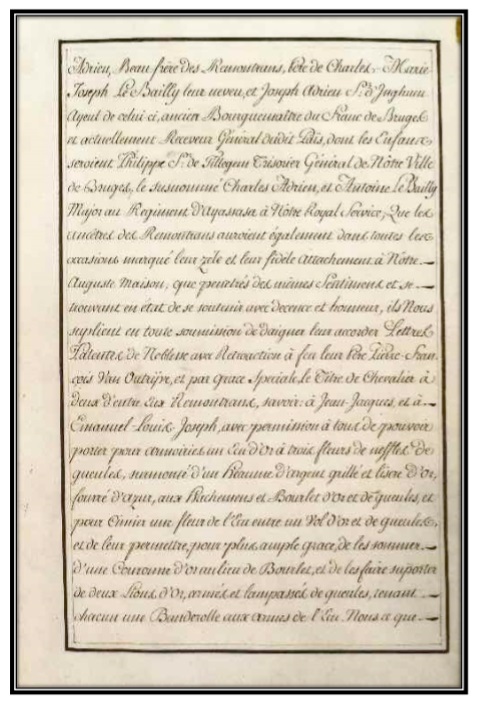 Adrien, Beau frère des Remontrans, Père de Charles-Marie
Joseph Le Bailly leur neveu, et Joseph Adrien Sr. d'Inghuem
Ayeul de celui ci, ancien Bourguemaitre du Franc de Bruges
et actuellement Receveur Général dudit Païs, dont les Enfans
seroient Philippe Sr. de Tilleghem Trisorier Général de Nôtre Ville
de Bruges, le susnommé Charles Adrien, et Antoine Le Bailly
Major au Regiment d'Ayasasa à Nôtre Royal Service; Que les
ancêtres des Remontrans auroient également dans toutes les
occasions marqué leur zèle et leur fidèle attachement à Nôtre
Auguste Maison, que penetrés des mêmes Sentimens et se
trouvant en état de se soutenir avec decence et honneur, ils Nous
suplient en toute soumission de daigner leur accorder Lettres
Patentes de Noblesse avec Retroaction à feu leur Père Pierre-Fran
çois Van Outrijve, et par Grace Speciale, le Titre de Chevalier à
deux d'entre eux Remontrans, savoir: à Jean-Jacques, et à
Emanuel-Louis Joseph, avec permission à tous de pouvoir
porter pour armoiries un Ecu d'Or à trois fleurs de nefflier de
gueules, surmonté d'un Heaume d'argent grillé et liseré d'Or,
fourré d'Azur, aux Hachemens et Bourlet d'Or et de gueules, et
pour Cimier une fleur de l'Ecu entre un Vol d'Or et de gueules,
et de leur permettre, pour plus ample grace, de les sommer
d'une Couronne d'Or au lieu de Bourlet, et de les faire suporter
de deux Lions d'Or, armés et lampassés de gueules, tenant
chacun une Banderolle aux armes de l'Ecu. Nous ce que